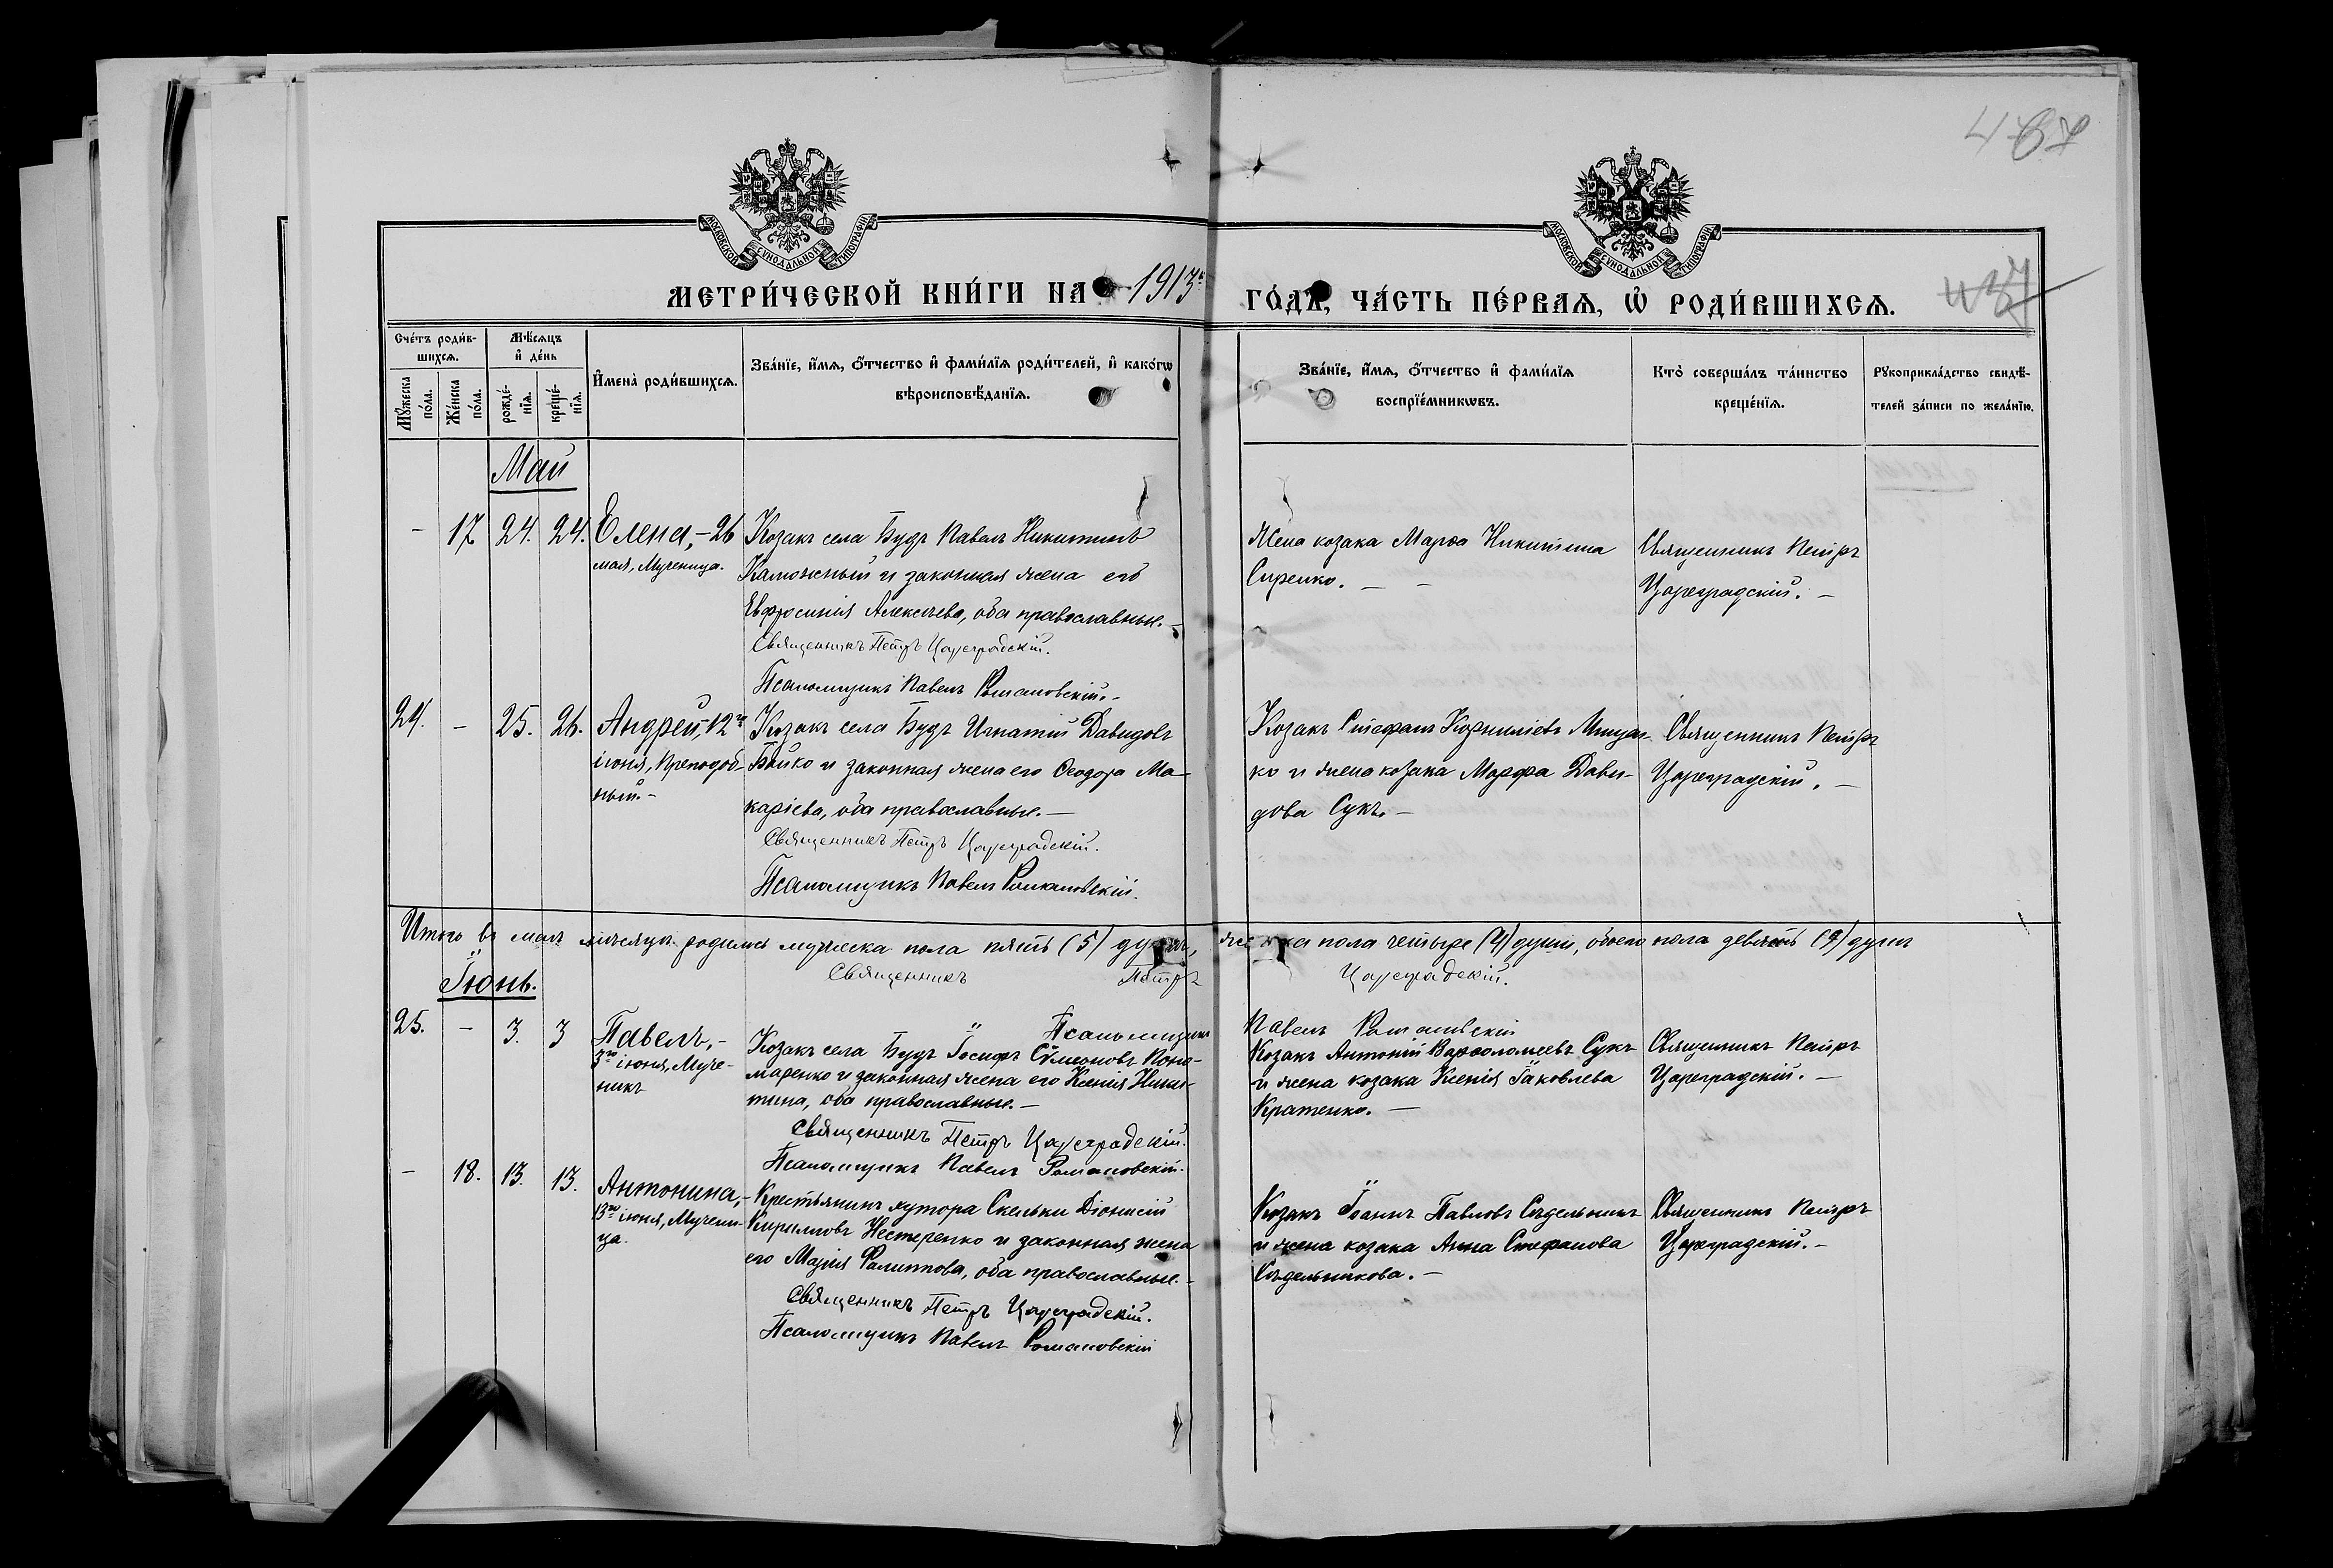 467
МОСКОВСКОЙ СѴНОДАЛЬНОЙ ТИПОГРАФІИ
МОСКОВСКОЙ СѴНОДАЛЬНОЙ ТИПОГРАФІИ
МЕТРИ́ЧЕСКОЙ КНИ́ГИ НА 1913й ГО́ДЪ, ЧА́СТЬ ПЕ́РВАЯ, Ѡ РОДИ́ВШИХСѦ.
Сче́тъ роди́в-
шихсѧ.
Мѣ́сѧцъ
и҆ де́нь
Мꙋ́жеска
по́ла.
Же́нска
по́ла.
рожде́-
нїѧ.
креще́-
нїѧ.
И҆мена̀ роди́вшихсѧ.
Зва́нїе, и҆́мѧ, ѻ҆́тчество и҆ фами́лїѧ роди́телей, и҆ како́гѡ
вѣроисповѣ́данїѧ.
Зва́нїе, и҆́мѧ, ѻ҆́тчество и҆ фами́лїѧ
воспрїе́мникѡвъ.
Кто̀ соверша́лъ та́инство
креще́нїѧ.
Рꙋкоприкла́дство свидѣ́-
телей за́писи по жела́нїю.
Май
- 17 24. 24. Елена, - 26
мая, Мученица.
Козакъ села Будъ Павелъ Никитинъ
Каможный и законная жена его
Евфросинія Алексѣева, оба православные. -
Священникъ Петръ Цареградскій.
Псаломщикъ Павелъ Романовскій. -
Жена козака Марѳа Никитина
Сиренко. -
Священникъ Петръ
Цареградскій. -
24. - 25. 26. Андрей, 12го
іюня, Преподоб-
ный. -
Козакъ села Будъ Игнатій Давидовъ
Бойко и законная жена его Ѳеодора Ма-
каріева, оба православные. -
Священникъ Петръ Цареградскій.
Псаломщикъ Павелъ Романовскій.
Козакъ Стефанъ Корниліевъ
ко и жена козака Марфа Дави-
дова Сукъ. -
Священникъ Петръ
Цареградскій. -
Итого въ маѣ мѣсяцѣ родилось мужеска пола пять (5) душъ, женска пола четыре (4) души, обоего пола девять (9) душъ
Священникъ Петръ Цареградскій.
Псаломщикъ Павелъ Романовскій
Іюнь.
25. - 3. 3 Павелъ, -
3го іюня, Муче-
никъ
Козакъ села Будъ Іосифъ Сѵмеоновъ Поно-
маренко и законная жена его Ксенія Ники-
тина, оба православные. -
Священникъ Петръ Цареградскій.
Псаломщикъ Павелъ Романовскій.
Козакъ Антоній Варѳоломеевъ Сукъ
и жена козака Ксенія Іаковлева
Кратенко. -
Священникъ Петръ
Цареградскій. -
- 18. 13. 13. Антонина, -
13го іюня, Мучени-
ца.
Крестьянинъ хутора Скельки Діонисій
Кирилловъ Нестеренко и законная жена
его Марія Филиппова, оба православные. -
Священникъ Петръ Цареградскій.
Псаломщикъ Павелъ Романовскій
Козакъ Іоаннъ Павловъ Сѣдельникъ
и жена козака Анна Стефанова
Сѣдельникова. -
Священникъ Петръ
Цареградскій. -